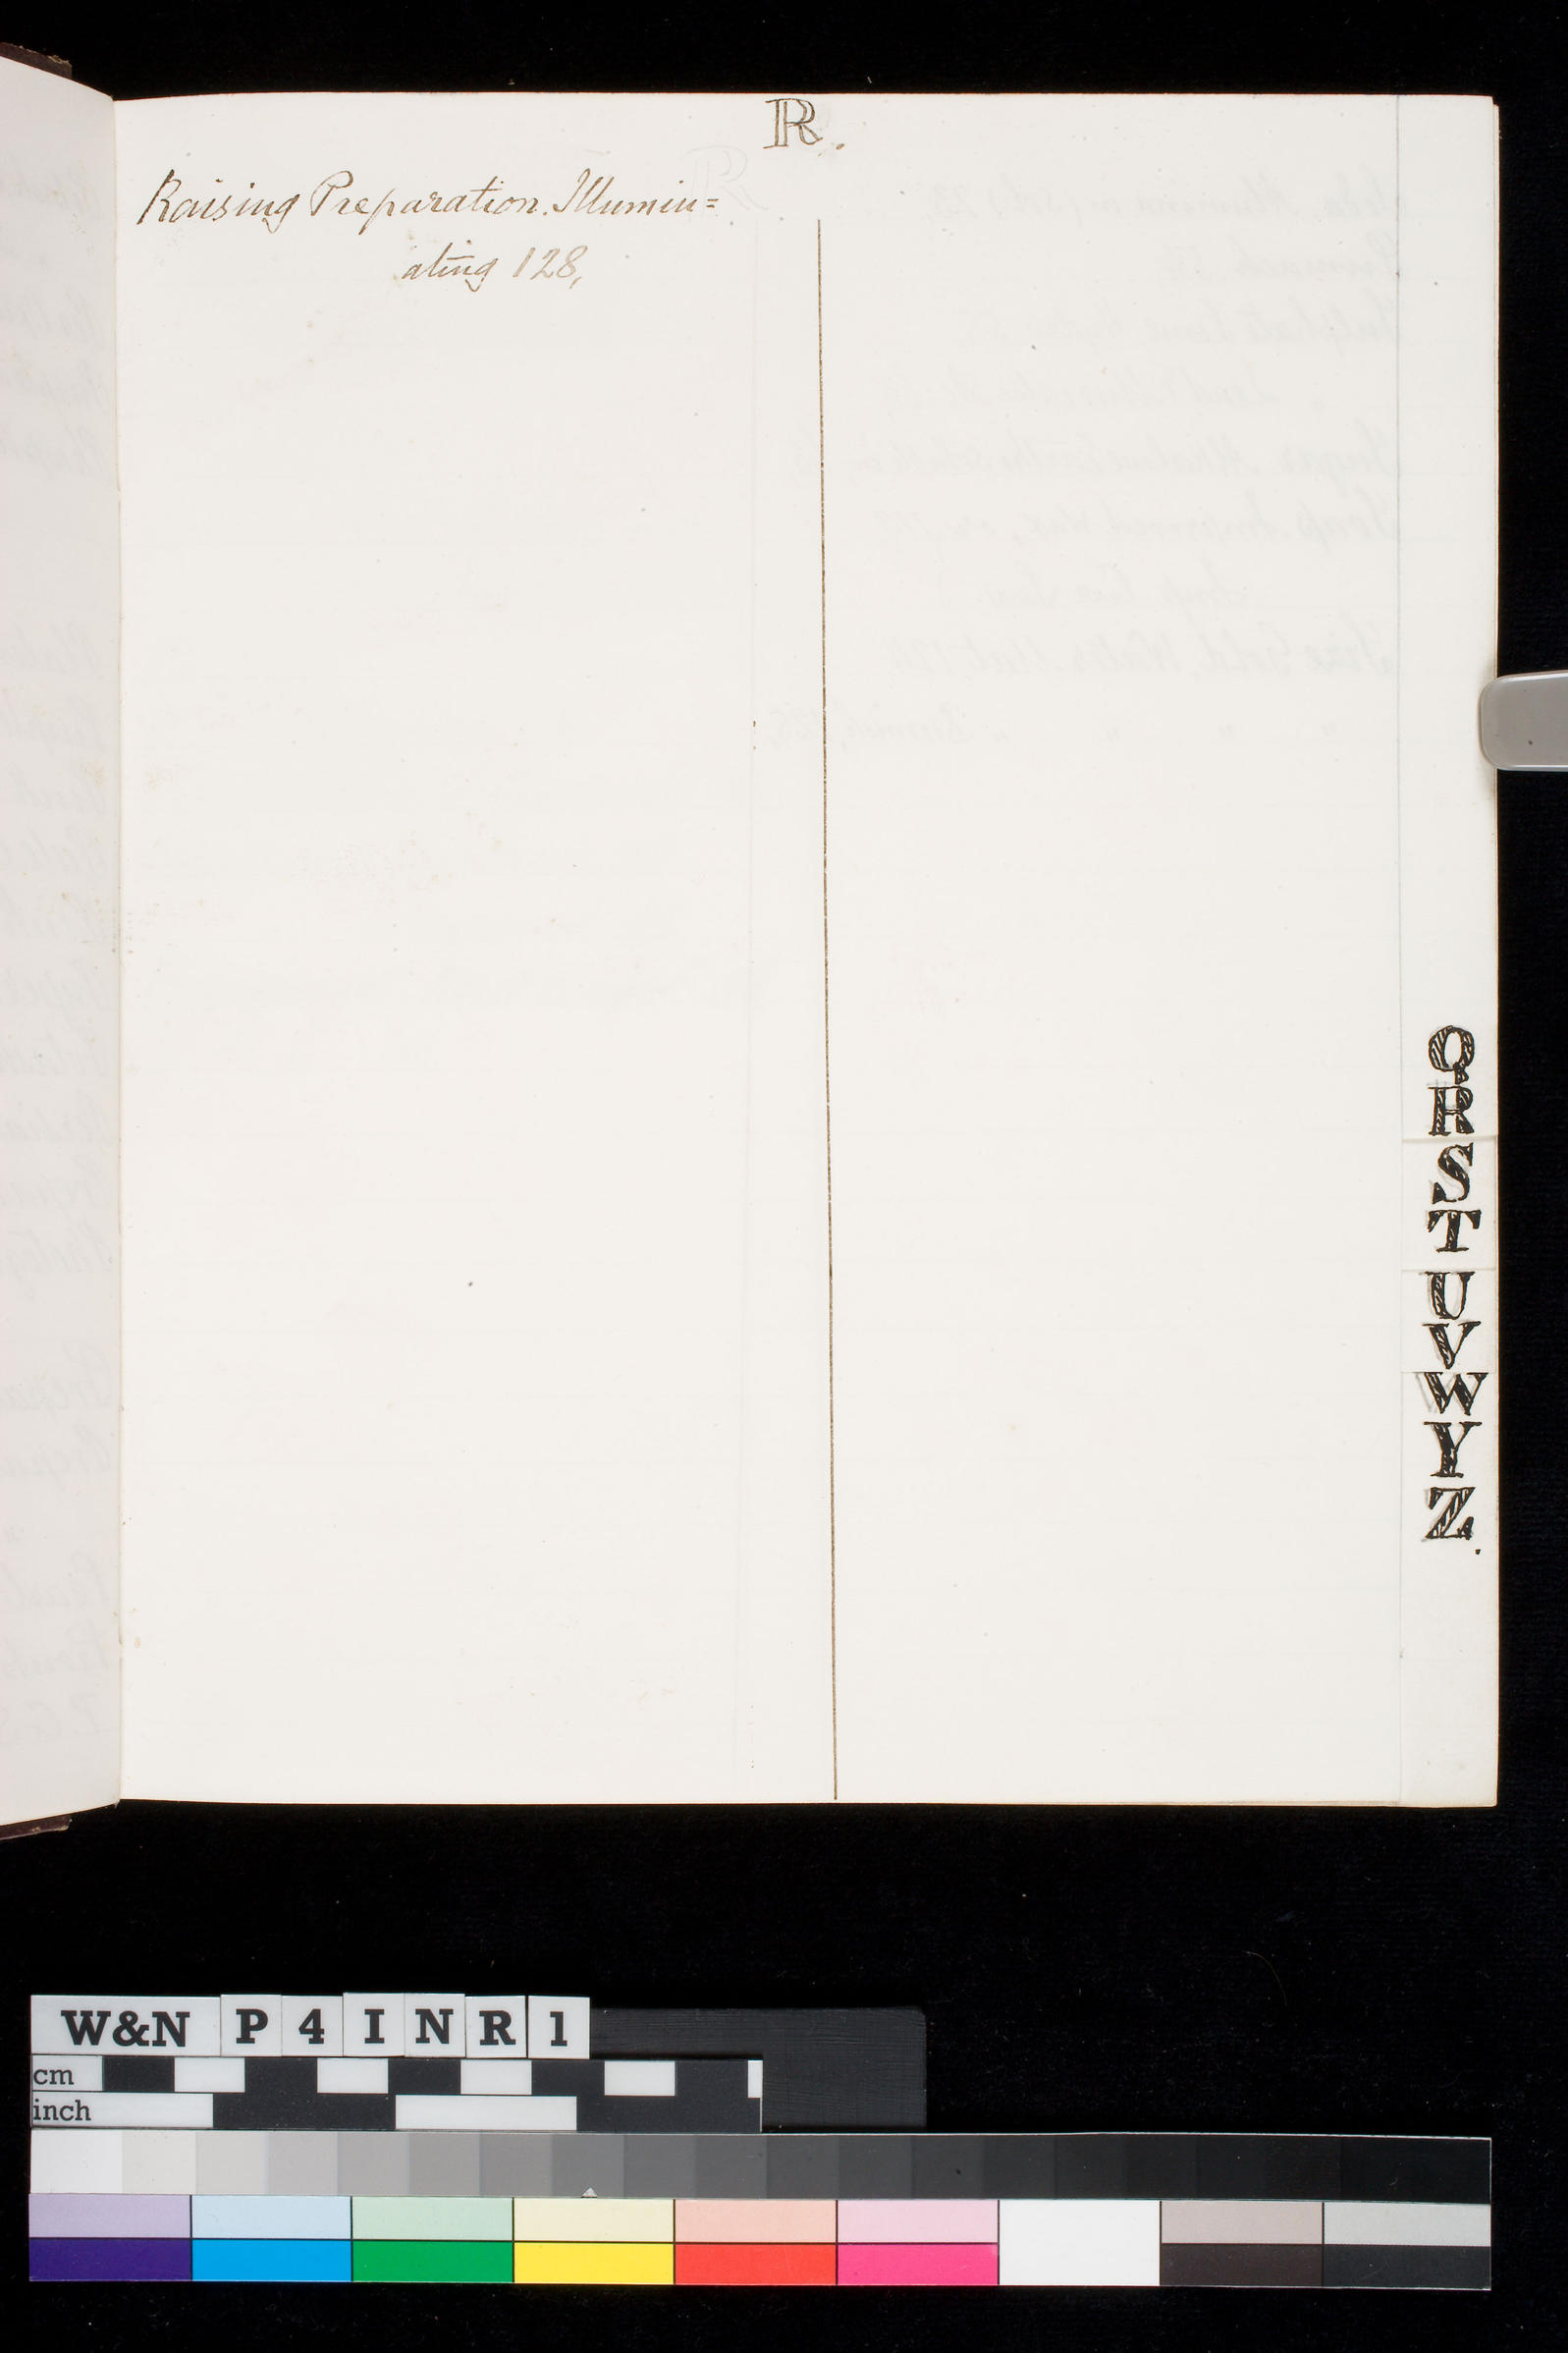 R.
Raising Preparation. Illumin=
ating 128,
Q
R
S
T
U
V
W
Y
Z.
W&N P 4 I N R 1
cm
inch